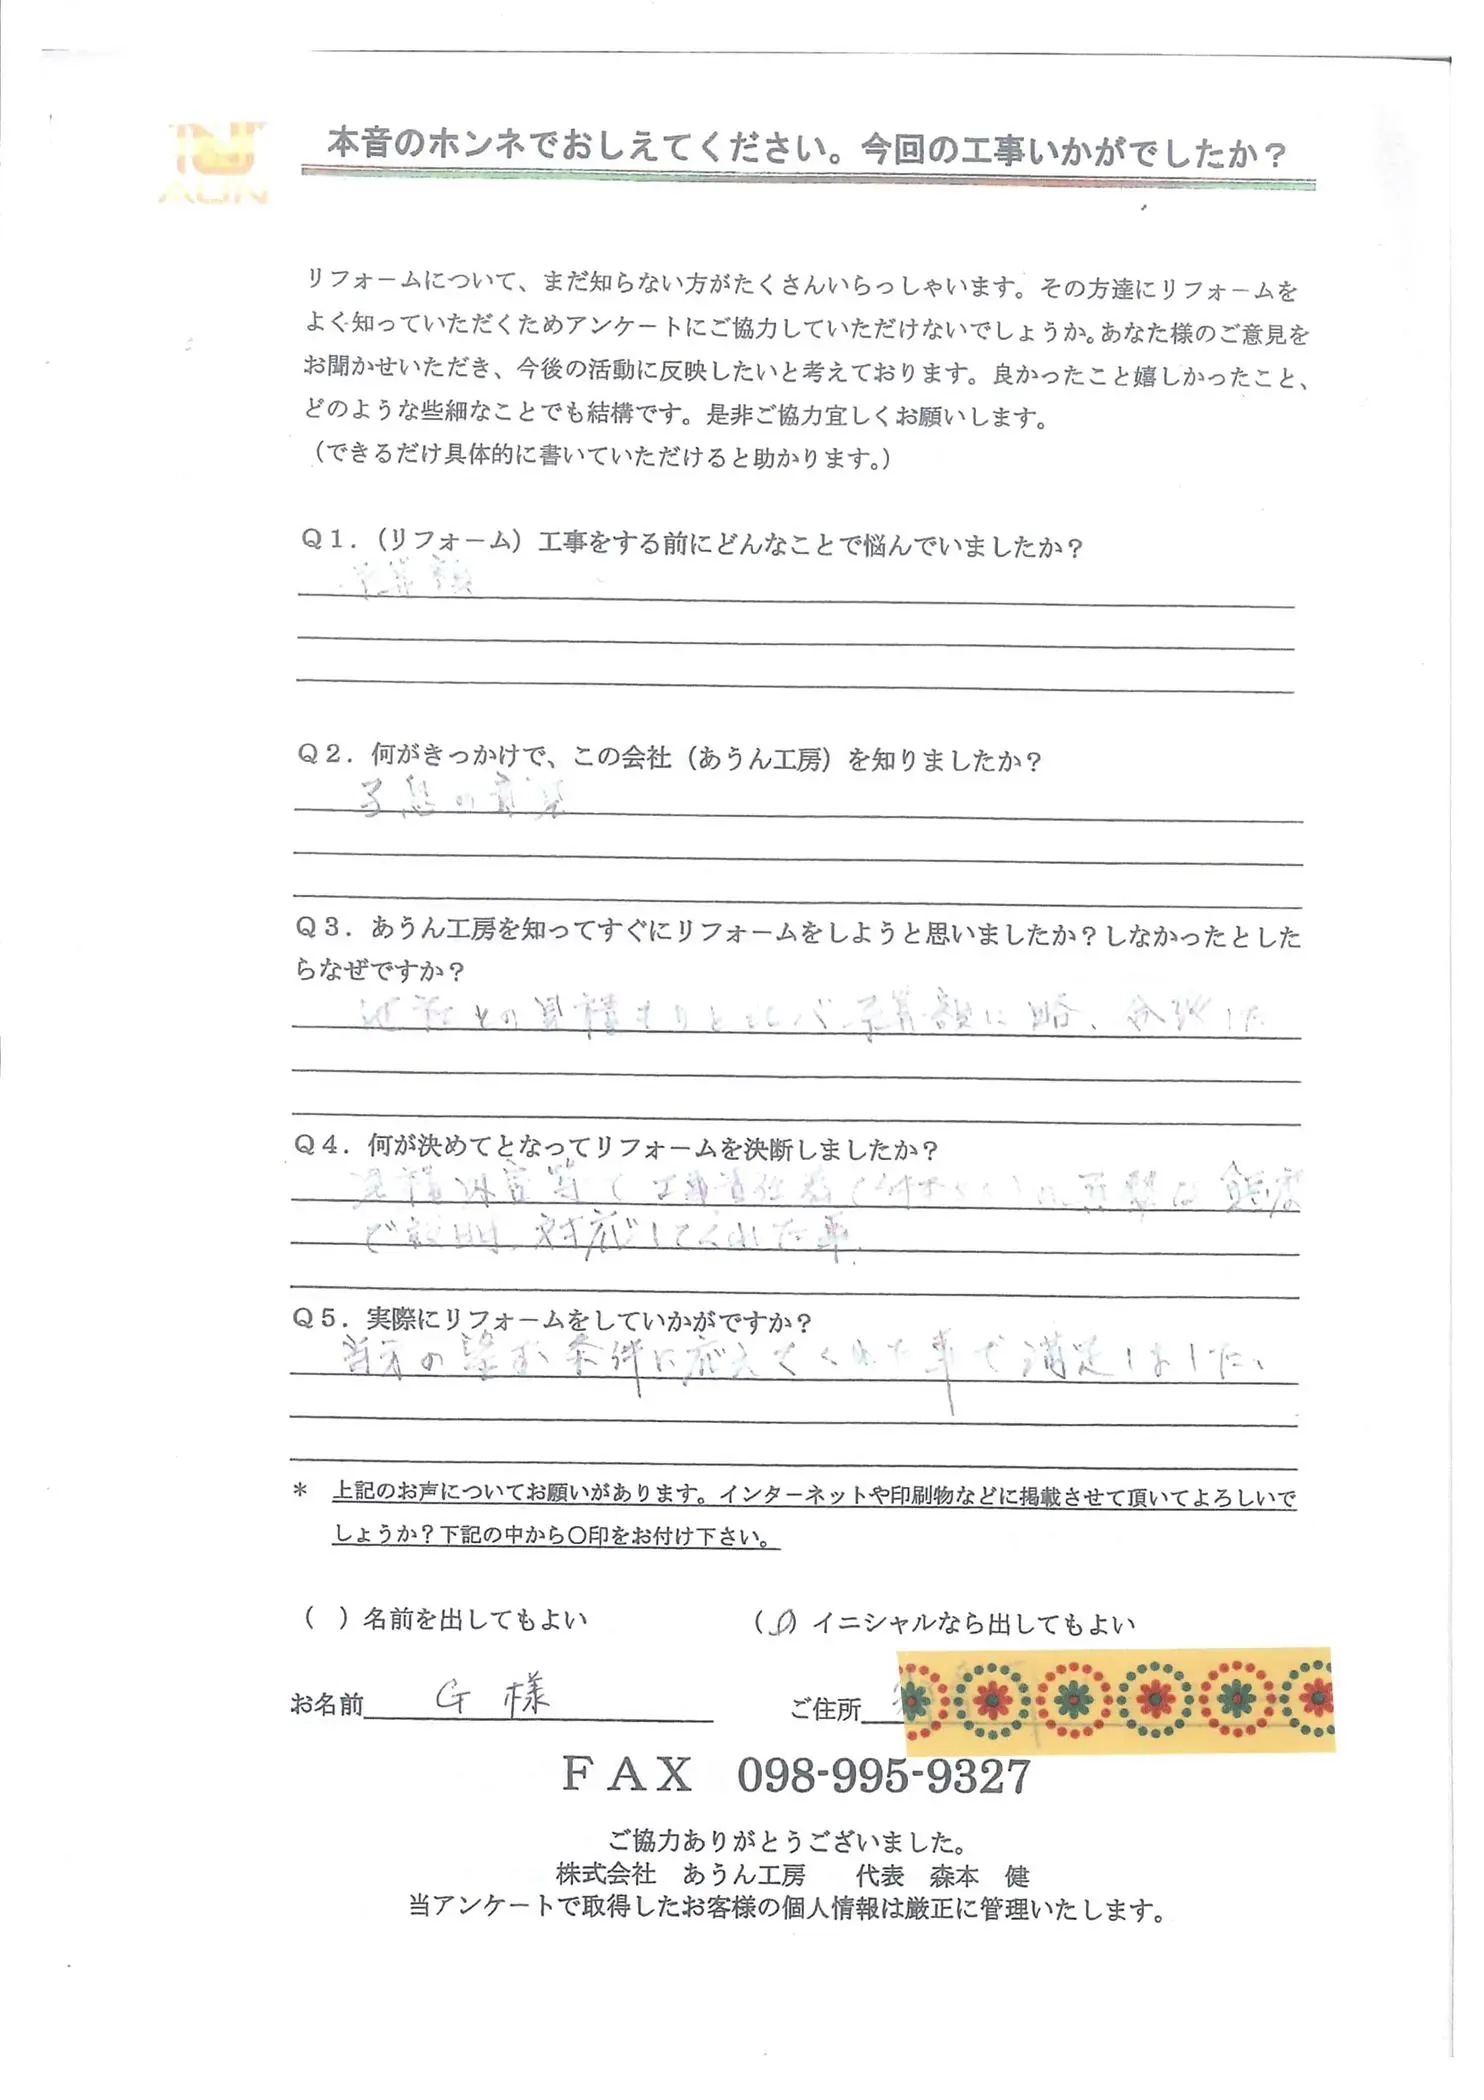 AUN
本音のホンネでおしえてください。今回の工事いかがでしたか？
リフォームについて、まだ知らない方がたくさんいらっしゃいます。その方達にリフォームを
よく知っていただくためアンケートにご協力していただけないでしょうか。あなた様のご意見を
お聞かせいただき、今後の活動に反映したいと考えております。良かったこと嬉しかったこと、
どのような些細なことでも結構です。是非ご協力宜しくお願いします。
（できるだけ具体的に書いていただけると助かります。）
Ｑ１．（リフォーム）工事をする前にどんなことで悩んでいましたか？
予算額
Ｑ２．何がきっかけで、この会社（あうん工房）を知りましたか？
子息の
Ｑ３．あうん工房を知ってすぐにリフォームをしようと思いましたか？しなかったとした
らなぜですか？
他社との見積もりと比べ予算額に略、合致した
Ｑ４．何が決めてとなってリフォームを決断しましたか？
見積内容等で工事責任者
で説明、対応してくれた事。
Ｑ５．実際にリフォームをしていかがですか？
当方の望む条件に応えてくれた事で満足しました、
＊　上記のお声についてお願いがあります。インターネットや印刷物などに掲載させて頂いてよろしいで
しょうか？下記の中から〇印をお付け下さい。
（　）名前を出してもよい　（〇）イニシャルなら出してもよい
お名前 G 様　ご住所
ＦＡＸ　098-995-9327
ご協力ありがとうございました。
株式会社　あうん工房　　代表　森本　健
当アンケートで取得したお客様の個人情報は厳正に管理いたします。